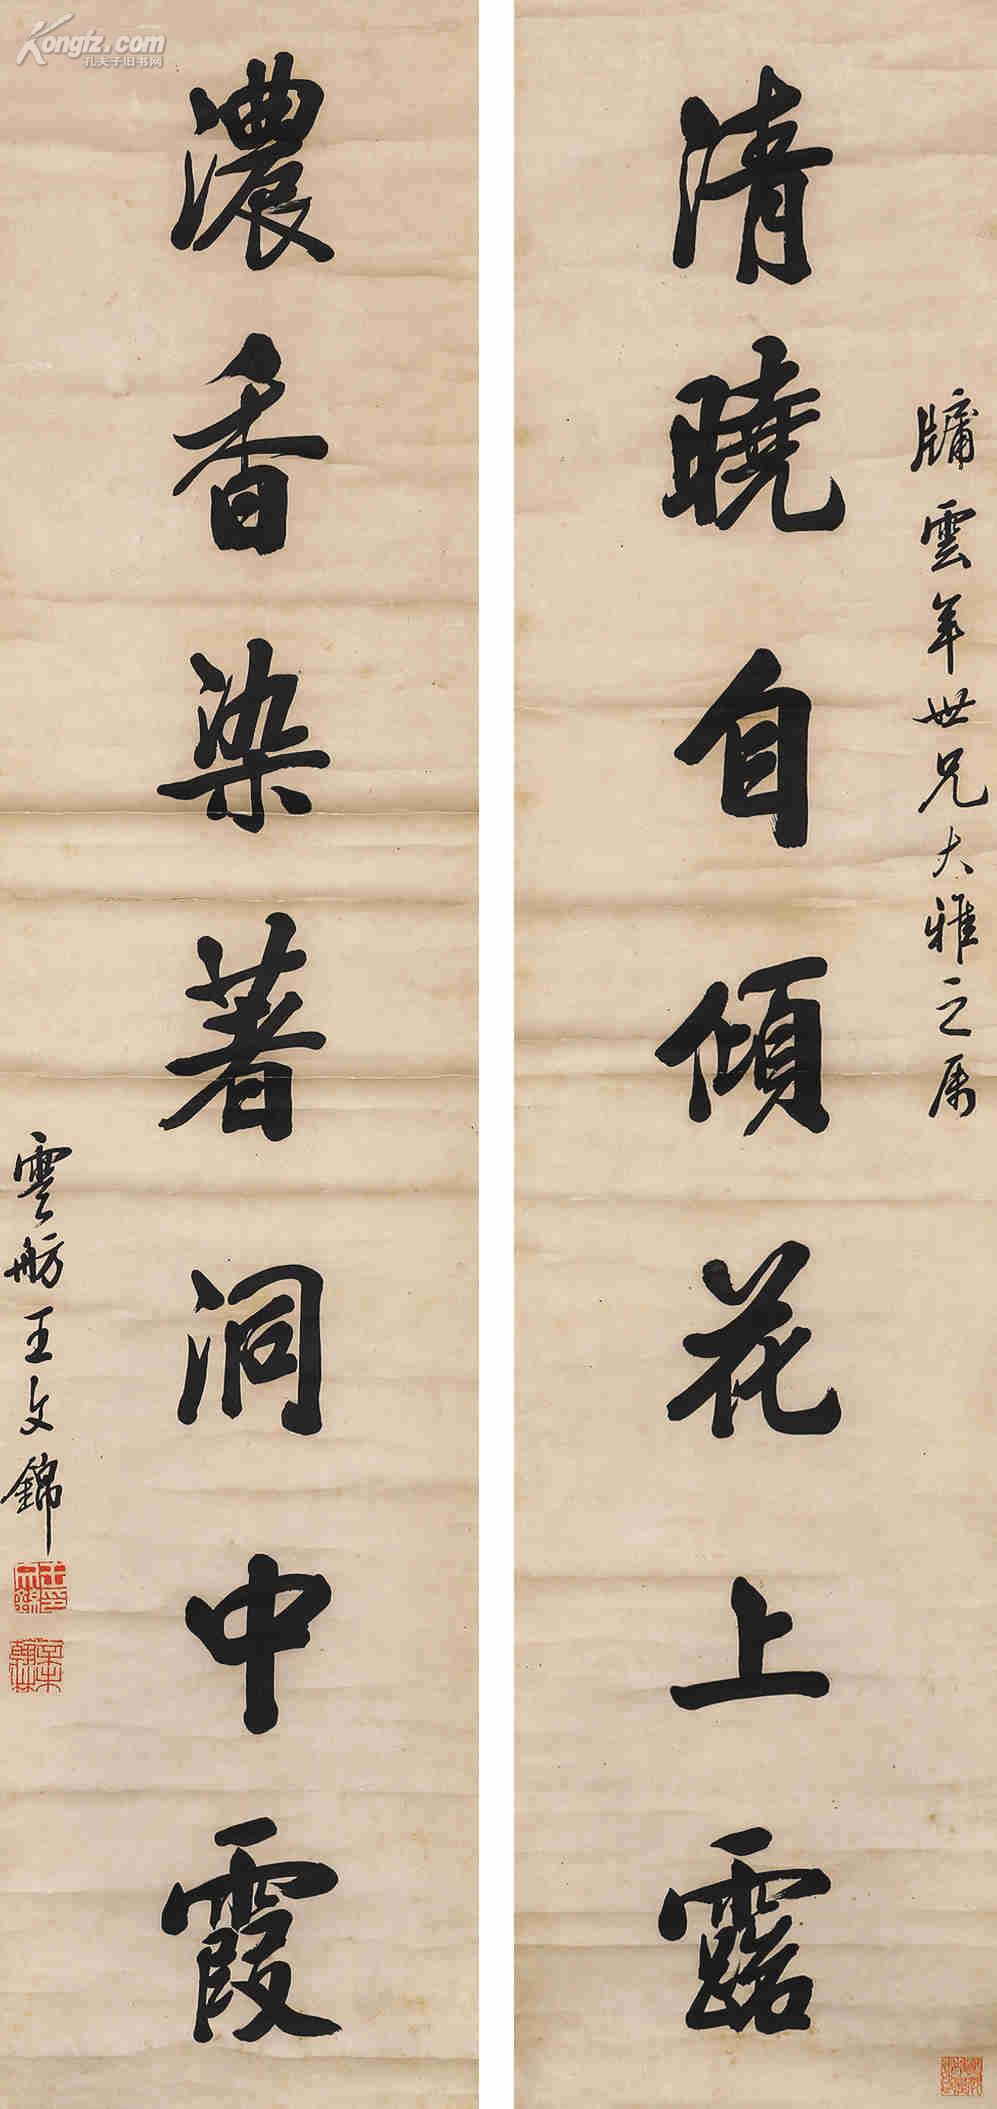 牗雲年世兄大雅之属
清曉自傾花上露
濃香染著洞中霞
雲舫王文錦
Kongfz.com
孔夫子旧书网